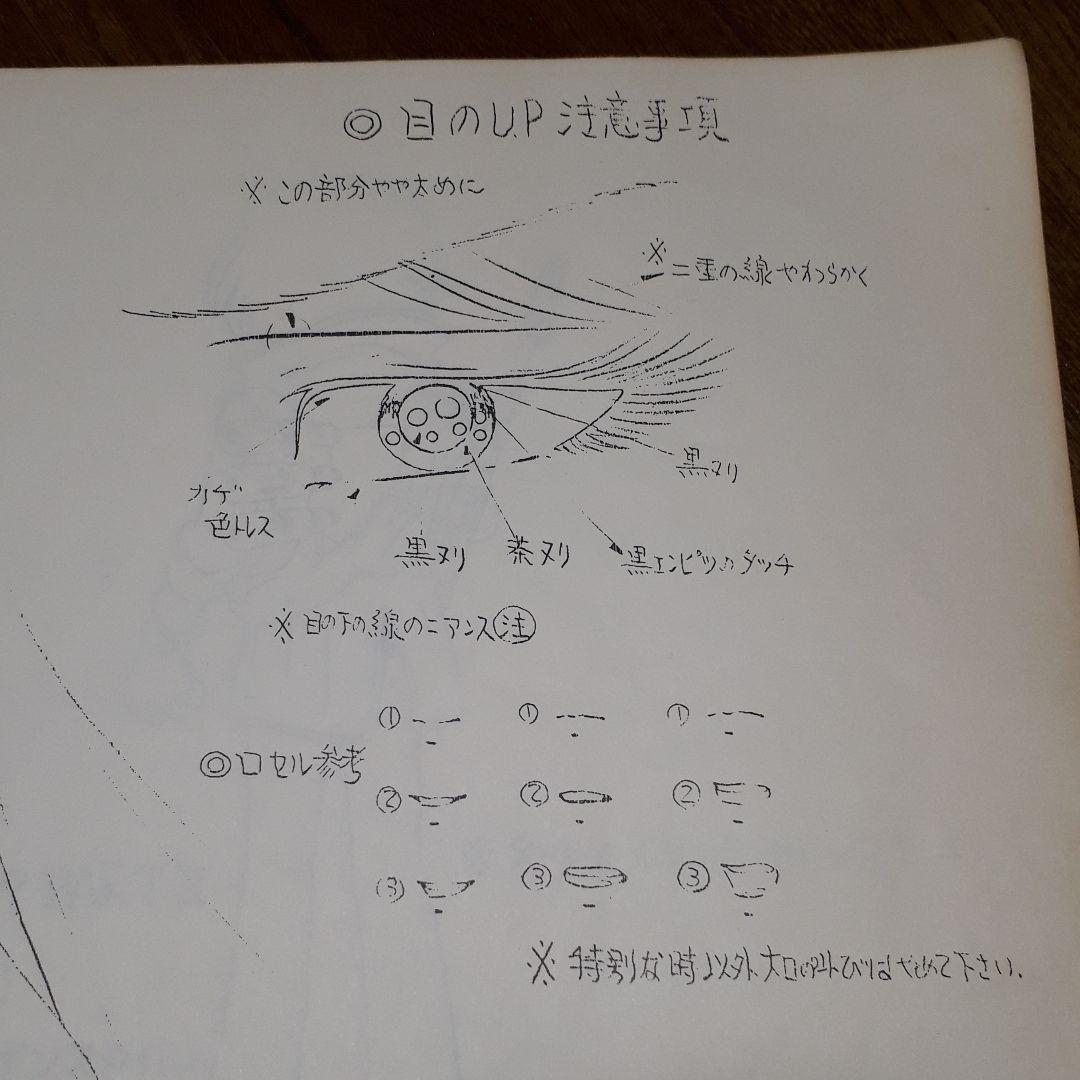 ◎ 目のU.P 注意事項
※ この部分やや太めに
※
二重の線やわらかく
黒ヌリ
カゲ
色トレス
黒ヌリ
茶ヌリ
黒エンピツのタッチ
※ 目の下の線のニアンス㊟
◎口セル参考
① ① ①
② ② ②
③ ③ ③
※ 特別な時以外、大口の叫びはやめて下さい.